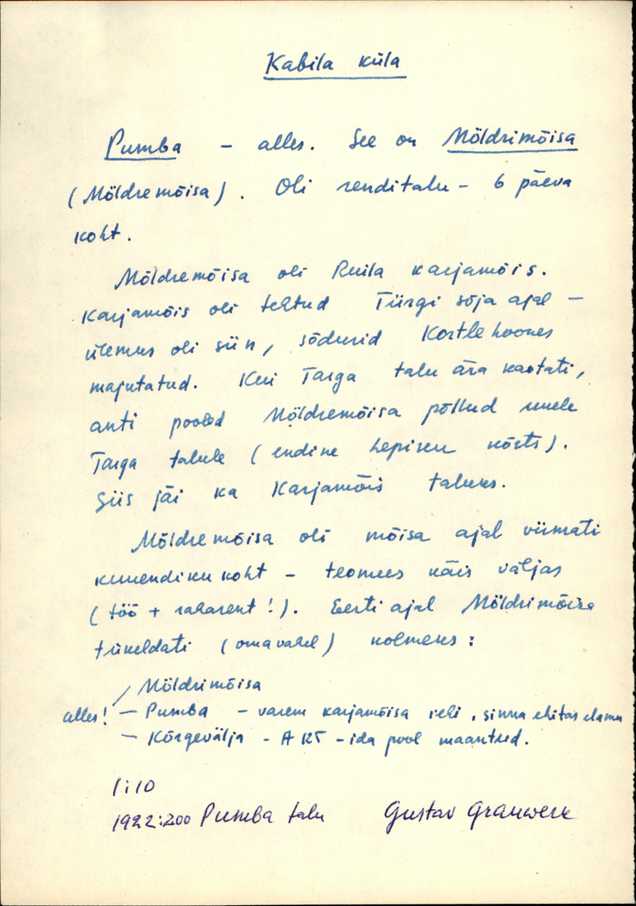 Kabila küla
Pumba – alles. See on Möldrimõisa
(Möldremõisa). Oli renditalu – 6 päeva
koht.
Möldremõisa oli Ruila karjamõis.
Karjamõis oli tehtud Türgi sõja ajal –
ülemus oli siin, sõdurid hoones
majutatud. Kui Targa talu ära kaotati,
anti pooled Möldremõisa põllud uuele
Targa talule (endine Lepiku kõrts).
Siis jäi ka Karjamõis taluks.
Möldremõisa oli mõisa ajal viimati
kuuendiku koht – teomees käis väljas
(töö + raharent!). Eesti ajal Möldrimõisa
tükeldati (omavahel) kolmeks:
/ Möldrimõisa
alles! – Pumba – varem karjamõisa rehi, sinna ehitas elama
– Kõrgevälja – A 125 – ida pool maanteed.
1:10
1922:200 Pumba talu Gustav Grauwerk